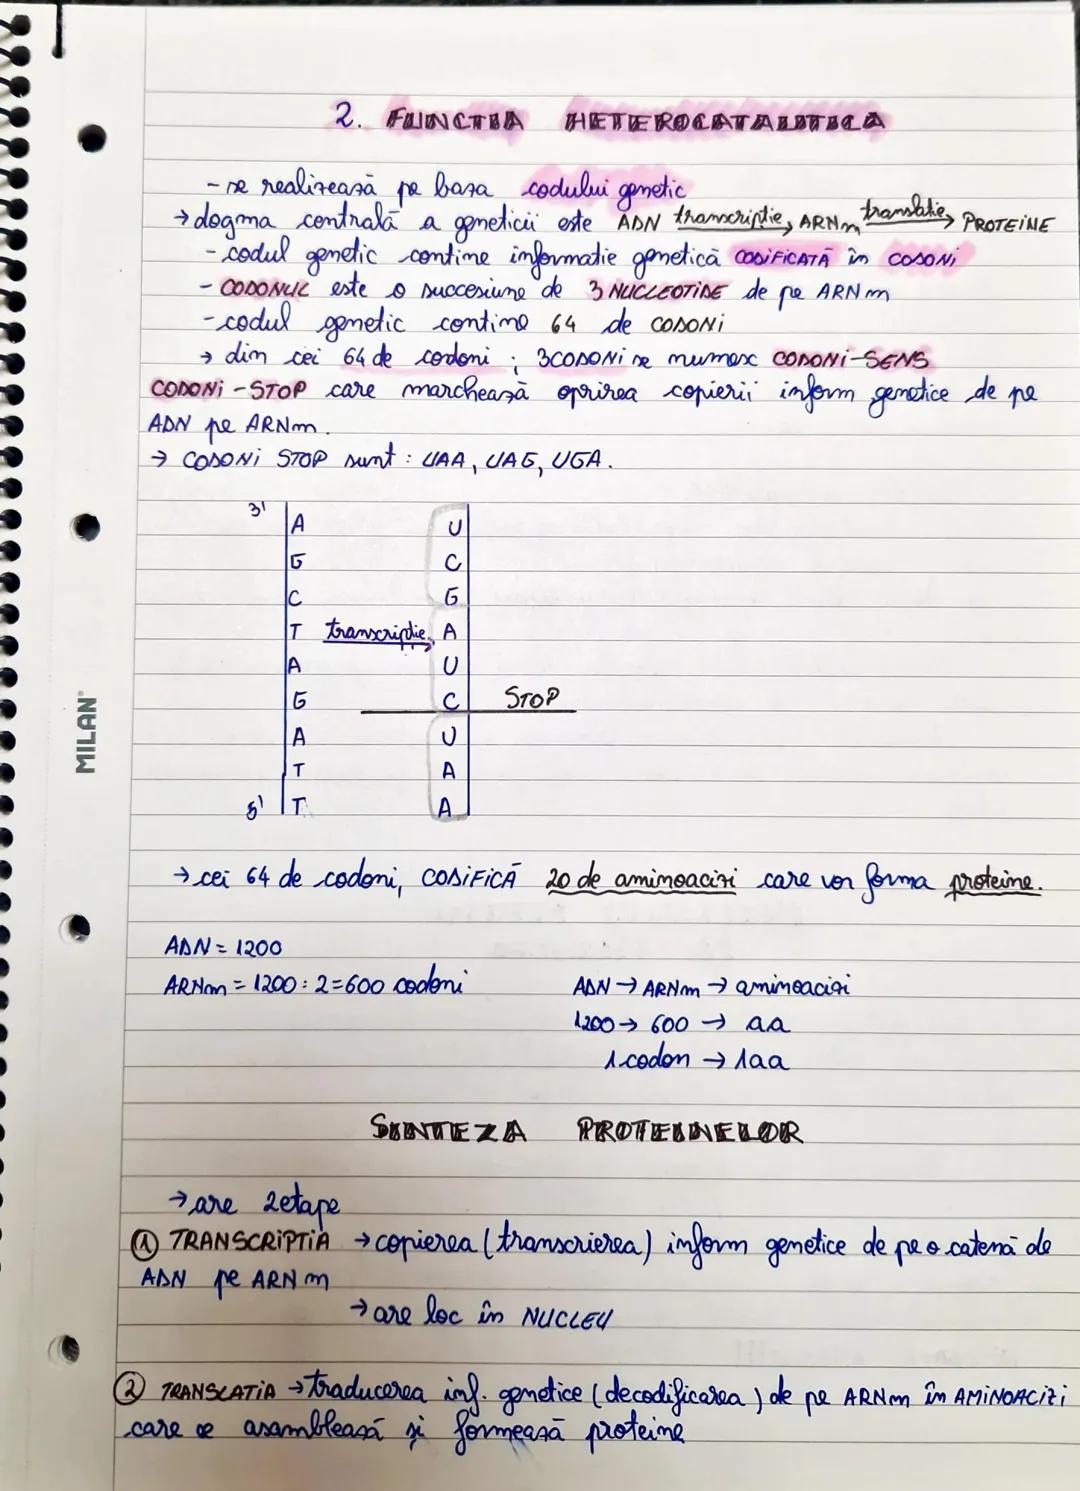 2. FUNCTIA HETEROCATALITICA
- se realizează pe baza codului genetic
→ dogma centrală a geneticii este ADN transcripție→ ARNm translatie→ PROTEINE
- codul genetic contine informatie genetică CODIFICATĂ în CODONI
- CODONUL este o succesiune de 3 NUCLEOTIDE de pe ARNm
- codul genetic contine 64 de CODONI
→ din cei 64 de codoni ; 3 CODONI se numesc CODONI-SENS
CODONI-STOP care marchează oprirea copierii inform genetice de pe
ADN pe ARNm.
→ CODONI STOP sunt : UAA, UAG, UGA.
3'
A U
G C
C G
T transcriptie→ A
A U
G C STOP
A U
T A
5' T A
→ cei 64 de codoni, CODIFICĂ 20 de aminoacizi care vor forma proteine.
ADN = 1200
ARNm = 1200 : 2 = 600 codoni ADN → ARNm → aminoacizi
1200 → 600 → aa
1 codon → 1aa
SINTEZA PROTEINELOR
→ are 2 etape
① TRANSCRIPTIA → copierea (transcrierea) inform genetice de pe o catenă de
ADN pe ARNm
→ are loc în NUCLEU
② TRANSLATIA → traducerea inf. genetice (decodificarea) de pe ARNm în AMINOACIZI
care se asamblează și formează proteine
MILAN®